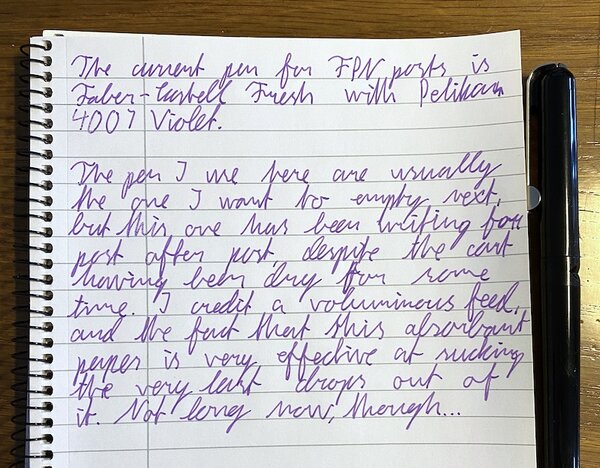 The current pen for FPN posts is
Faber-Castell Fresh with Pelikan
4001 Violet.
The pen I use here are usually
the one I want to empty next,
but this one has been writing for
post after post despite the cart
having been dry for some
time. I credit a voluminous feed,
and the fact that this absorbant
paper is very effective at sucking
the very last drops out of
it. Not long now, though...